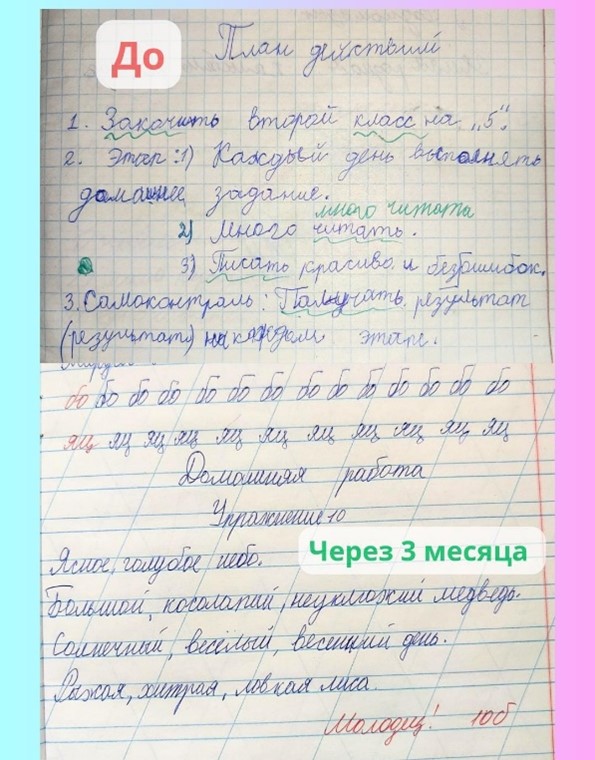 До
План действий
1. Закачить второй класс на „5".
2. Этап: 1) Каждый день выполнять
домашнее задание.
много читата
2) много читать.
3) Писать красиво и без ошибок.
3. Самоконтроль: Палучать результат
(результат) на каждом этапе.
бо бо бо бо бо бо бо бо бо бо бо бо бо бо
яц яц яц яц яц яц яц яц яц яц яц яц
Домашняя работа
Упражнение 10
Через 3 месяца
Ясное, голубое небо.
Большой, косолапий, неуклюжий медведь.
Солнечный, весёлый, весенний день.
Рыжая, хитрая, ловкая лиса.
Молодец! 10б